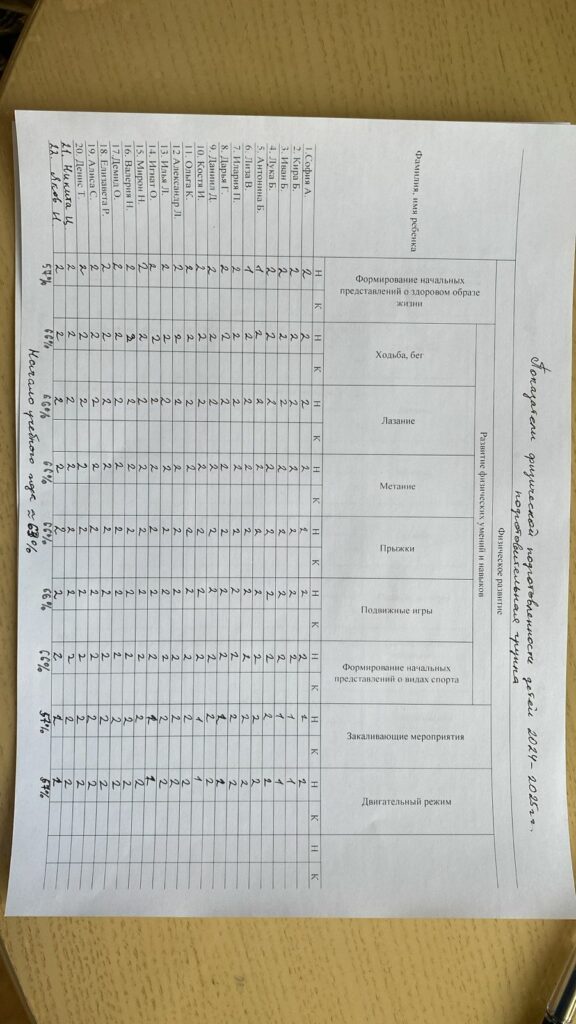 Показатели физической подготовленности детей 2024-2025гг.
подготовительная группа
Фамилия, имя ребенка
Физическое развитие
Формирование начальных представлений о здоровом образе жизни
Развитие физических умений и навыков
Закаливающие мероприятия
Двигательный режим
Ходьба, бег
Лазание
Метание
Прыжки
Подвижные игры
Формирование начальных представлений о видах спорта
Н К Н К Н К Н К Н К Н К Н К Н К Н К Н К
1.София А. 2 2 2 2 2 2 2
2. Кира Б. 2 2 2 2 2 2 2 1 1
3. Иван Б. 2 2 2 2 2 2 2 1 1
4. Лука Б. 2 2 2 2 2 2 2 2 2
5. Антонина Б. 1 2 2 2 2 2 2 2 2
6. Лиза В. 1 2 2 2 2 2 2 2 2
7. Илария П. 2 2 2 2 2 2 2 2 2
8. Дарья Г. 2 2 2 2 2 2 2
9. Даниил Д. 2 2 2 2 2 2 2 2 2
10. Костя И. 2 2 2 2 2 2 2 1 1
11. Ольга К. 2 2 2 2 2 2 2 2 2
12 Александр Л. 2 2 2 2 2 2 2 2 2
13. Илья Л. 2 2 2 2 2 2 2 2 2
14. Игнат О. 2 2 2 2 2 2 2
15. Мирон Н. 2 2 2 2 2 2 2 2 2
16. Валерия Н. 2 2 2 2 2 2 2 2 2
17.Демид О. 2 2 2 2 2 2 2 2 2
18. Елизавета Р. 2 2 2 2 2 2 2 2 2
19. Алиса С. 2 2 2 2 2 2 2 2 2
20. Денис Т. 2 2 2 2 2 2 2 2 2
21. Никита Ц 2 2 2 2 2 2 2 2 2
22. Яков И. 2 2 2 2 2 2 2
57% 66% 66% 66% 66% 66% 66% 57% 57%
Начало учебного года ≈ 63%